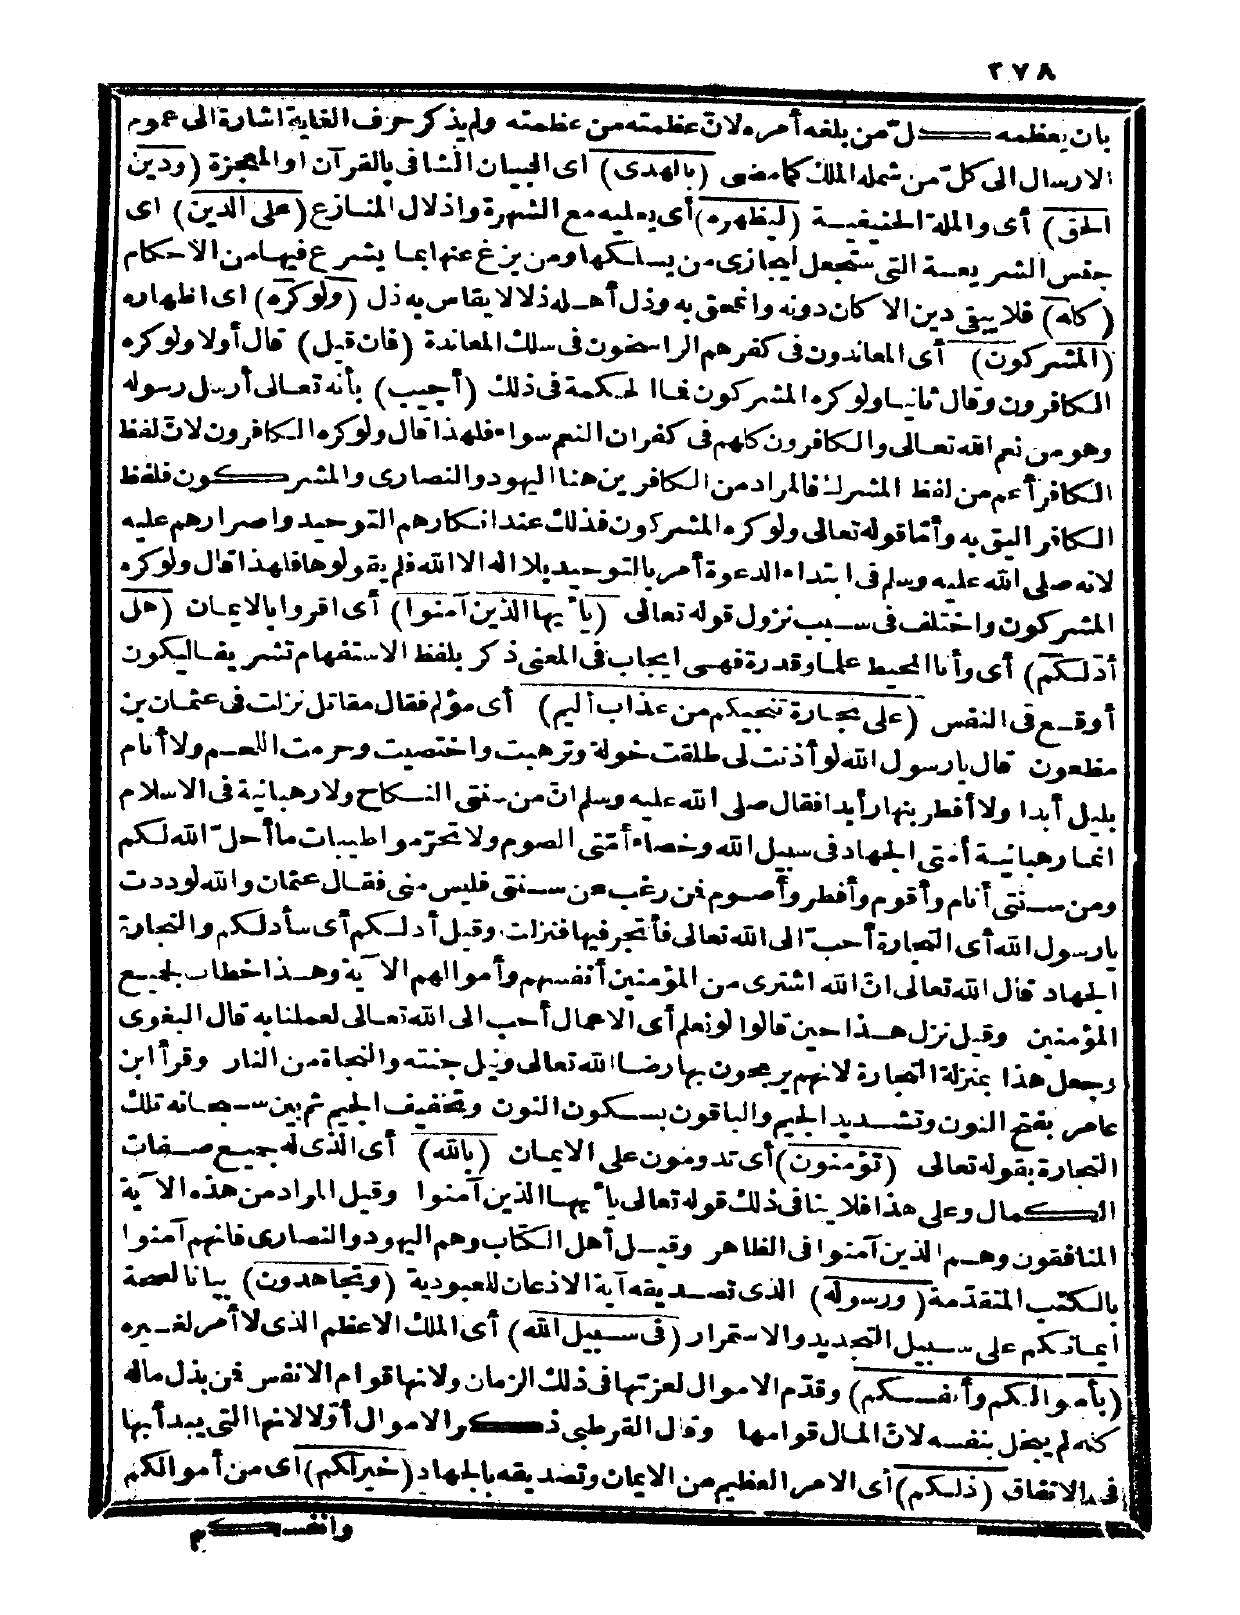 ٢٧٨
بان يعظمه كل من بلغه أمره لانّ عظمته من عظمته ولم يذكر حرف الغاية اشارة الى عموم
الارسال الى كلّ من شمله الملك كما مضى (بالهدى) اى البيان الشافى بالقرآن او المعجزة (ودين
الحق) أى والملة الحنيفية (ليظهره) أى يعليه مع الشهرة واذلال المنازع (على الدين) اى
جنس الشريعة التى ستجعل ليجازى من يسلكها ومن يزغ عنها بما يشرع فيها من الاحكام
(كله) فلا يبقى دين الا كان دونه وانمحق به وذل أهله ذلا لا يقاس به ذل (ولو كره) اى اظهاره
(المشركون) أى المعاندون فى كفرهم الراسخون فى سلك المعاندة (فان قيل) قال أولا ولو كره
الكافرون وقال ثانيا ولو كره المشركون فما الحكمة فى ذلك (أجيب) بأنه تعالى أرسل رسوله
وهو من نعم الله تعالى والكافرون كلهم فى كفران النعم سواء فلهذا قال ولو كره الكافرون لانّ لفظ
الكافر أعم من لفظ المشرك فالمراد من الكافرين هنا اليهود والنصارى والمشركون فلفظ
الكافر اليق به وأمّا قوله تعالى ولو كره المشركون فذلك عند انكارهم التوحيد واصرارهم عليه
لانه صلى الله عليه وسلم فى ابتداء الدعوة أمر بالتوحيد بلا اله الا الله فلم يقولوها فلهذا قال ولو كره
المشركون واختلف فى سبب نزول قوله تعالى (يأيها الذين آمنوا) أى اقروا بالايمان (هل
أدلكم) أى وأنا المحيط علما وقدرة فهى ايجاب فى المعنى ذكر بلفظ الاستفهام تشريفا ليكون
أوقع فى النفس (على تجارة تنجيكم من عذاب أليم) أى مؤلم فقال مقاتل نزلت فى عثمان بن
مظعون قال يا رسول الله لو أذنت لى طلقت خولة وترهبت واختصيت وحرمت اللحم ولا أنام
بليل أبدا ولا أفطر بنهار أبدا فقال صلى الله عليه وسلم انّ من سنتى النكاح ولا رهبانية فى الاسلام
انما رهبانية أمتى الجهاد فى سبيل الله وخصاء أمّتى الصوم ولا تحرّموا طيبات ما أحلّ الله لكم
ومن سنتى أنام وأقوم وأفطر وأصوم فمن رغب عن سنتى فليس منى فقال عثمان والله لوددت
يا رسول الله أى التجارة أحبّ الى الله تعالى فأتجر فيها فنزلت وقيل أدلكم أى سأدلكم والتجارة
الجهاد قال الله تعالى انّ الله اشترى من المؤمنين أنفسهم وأموالهم الآية وهذا خطاب لجميع
المؤمنين وقيل نزل هذا حين قالوا لو نعلم أى الاعمال أحب الى الله تعالى لعملنا به قال البغوى
وجعل هذا بمنزلة التجارة لانهم يربحون بها رضا الله تعالى ونيل جنته والنجاة من النار وقرأ ابن
عامر بفتح النون وتشديد الجيم والباقون بسكون النون وتخفيف الجيم ثم بين سبحانه تلك
التجارة بقوله تعالى (تؤمنون) أى تدومون على الايمان (بالله) أى الذى له جميع صفات
الكمال وعلى هذا فلا ينافى ذلك قوله تعالى يأيها الذين آمنوا وقيل المراد من هذه الآية
المنافقون وهم الذين آمنوا فى الظاهر وقيل أهل الكتاب وهم اليهود والنصارى فانهم آمنوا
بالكتب المتقدّمة (ورسوله) الذى تصديقه آية الاذعان للعبودية (وتجاهدون) بيانا لصحة
ايمانكم على سبيل التجديد والاستمرار (فى سبيل الله) أى الملك الاعظم الذى لا أمر لغيره
(بأموالكم وأنفسكم) وقدّم الاموال لعزتها فى ذلك الزمان ولانها قوام الانفس فمن بذل ماله
كله لم يبخل بنفسه لانّ المال قوامها وقال القرطبى ذكر الاموال أوّلا لانها التى يبدأ بها
فى الانفاق (ذلكم) أى الامر العظيم من الايمان وتصديقه بالجهاد (خير لكم) اى من أموالكم
وانفسكم